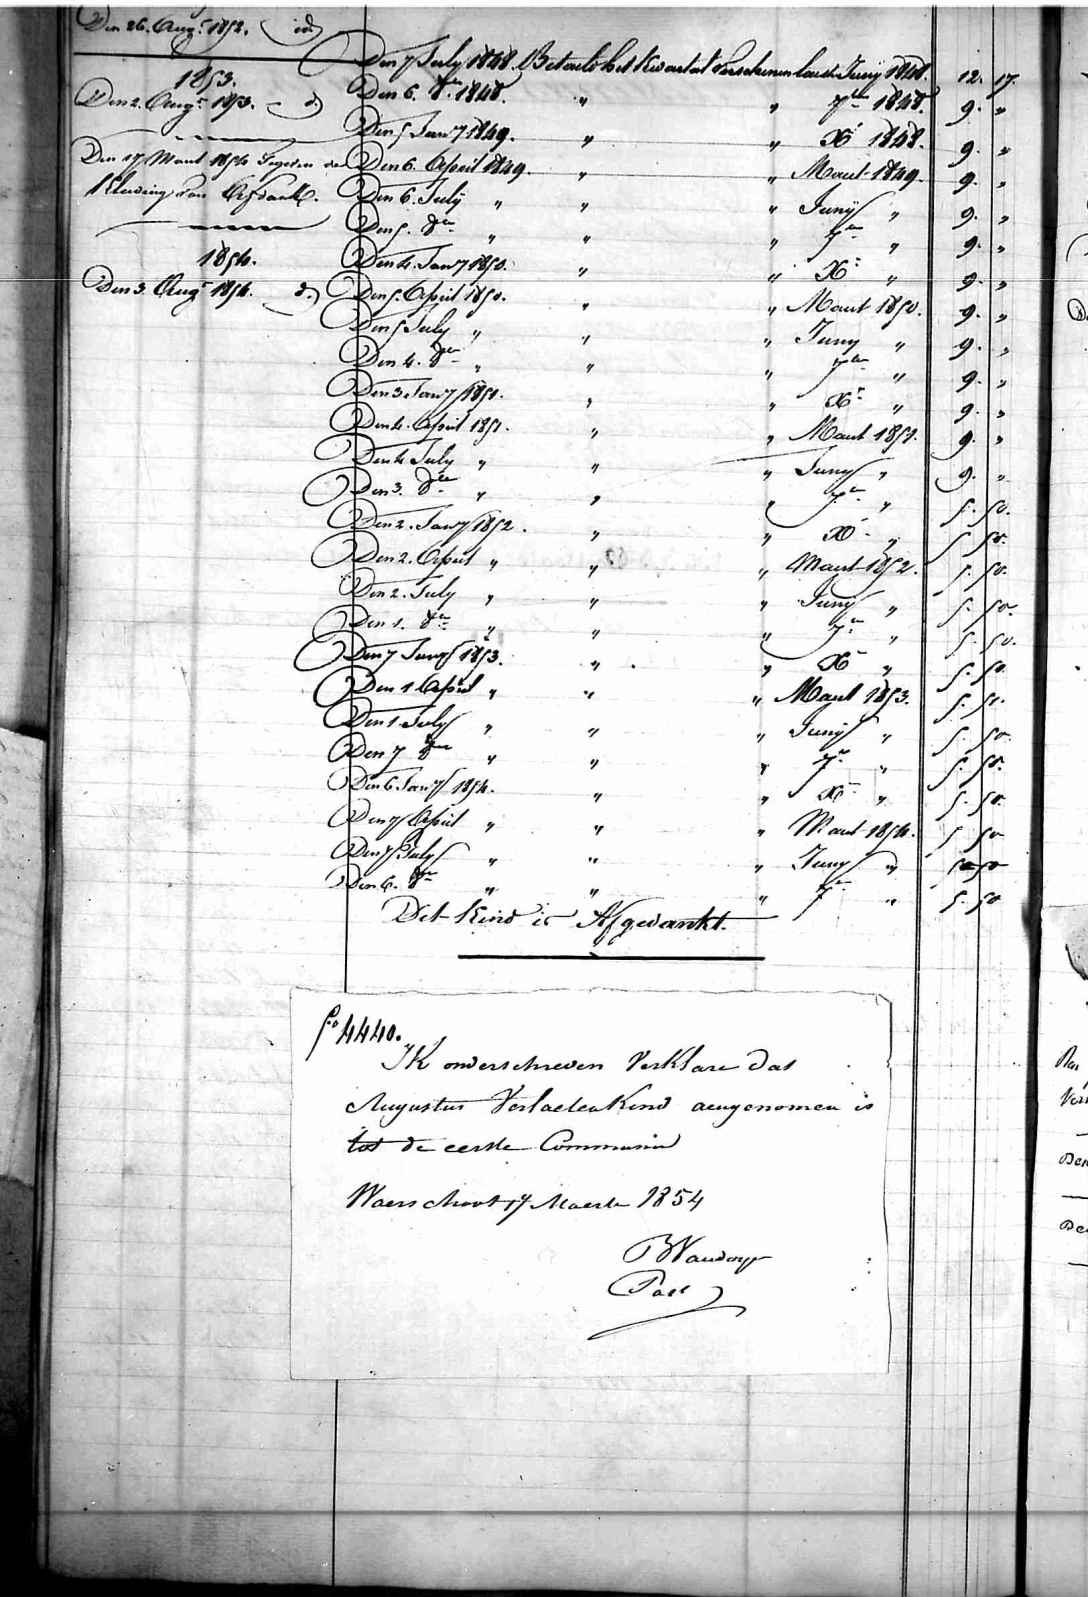 Den 26. Aug.t 1852. id.
1853.
Den 2. Aug.t 1853. - d.
Den 17 Maart 1854 Gegeven de
Kleeding van Afdank.
1854.
Den 3. Aug.t 1854. d.
Den 7 July 1848. Betaald het Kwartal Verschenen laast Juny 1848. 12. 17.
Den 6. 8.er 1848. " " 7.ber 1848. 9. "
Den 5 Jan.y 1849. " " X.r 1848. 9. "
Den 6. April 1849. " " Maart 1849. 9. "
Den 6. July " " " Juny " 9. "
Den 5. 8.er " " " 7.er " 9. "
Den 4. Jan.y 1850. " " X.r " 9. "
Den 5. April 1850. " " Maart 1850. 9. "
Den 5 July " " " Juny " 9. "
Den 4. 8.er " " " 7.er " 9. "
Den 3. Jan.y 1851. " " X.r " 9. "
Den 4. April 1851. " " Maart 1851. 9. "
Den 4 July " " " Juny " 9. "
Den 3. 8.er " " " 7.er " 5. 50.
Den 2. Jan.y 1852. " " X.r " 5. 50.
Den 2. April " " " Maart 1852. 5. 50.
Den 2. July " " " Juny " 5. 50.
Den 1. 8.er " " " 7.er " 5. 50.
Den 7 Jan.y 1853. " " X.r " 5. 50.
Den 1 April " " " Maart 1853. 5. 50.
Den 1 July " " " Juny " 5. 50.
Den 7 8.er " " " 7.er " 5. 50.
Den 6. Jan.y 1854. " " X.r " 5. 50.
Den 7 April " " " Maart 1854. 5. 50
Den 7 July " " " Juny " 5. 50
Den 6. 8.er " " " 7.er " 5. 50
Det Kind is Afgedankt.
f.o 4440.
Ik onderschreven Verklare dat
Augustus Verlaetenkind aengenomen is
tot de eerste Communie
Waerschoot 17 Maerte 1854
Past